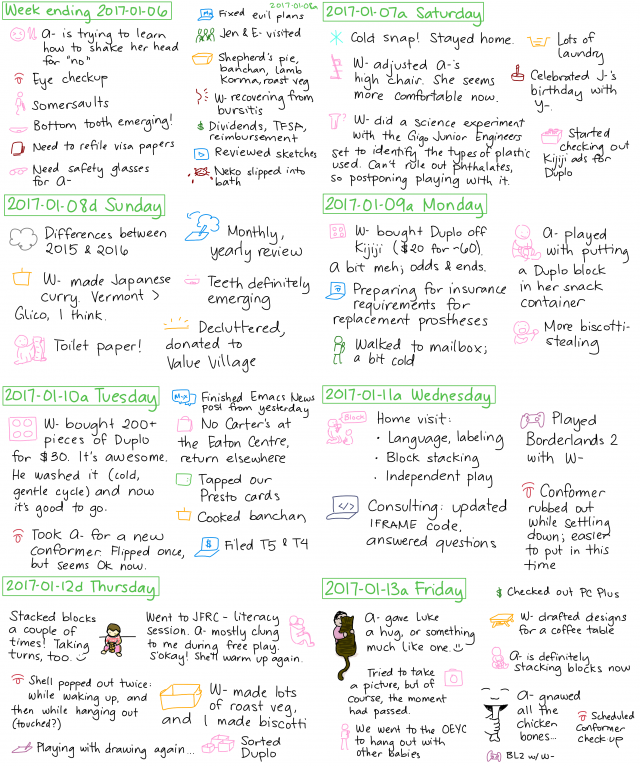 Week ending 2017-01-06
2017-01-08a
A- is trying to learn
how to shake her head
for "no"
Eye checkup
Somersaults
Bottom tooth emerging!
Need to refile visa papers
Need safety glasses
for A-
Fixed evil plans
Jen & E- visited
Shepherd's pie,
banchan, lamb
Korma, roast veg
W- recovering from
bursitis
$ Dividends, TFSA,
reimbursement
Reviewed sketches
Neko slipped into
bath
2017-01-07a Saturday
Cold snap! Stayed home.
W- adjusted A-'s
high chair. She seems
more comfortable now.
W- did a science experiment
with the Gigo Junior Engineers
set to identify the types of plastic
used. Can't rule out phthalates,
so postponing playing with it.
Lots of
laundry
Celebrated J-'s
birthday with
Y-.
Started
checking out
Kijiji ads for
Duplo
2017-01-08d Sunday
Differences between
2015 & 2016
W- made Japanese
curry. Vermont >
Glico, I think.
Toilet paper!
Monthly,
yearly review
Teeth definitely
emerging
Decluttered,
donated to
Value Village
2017-01-09a Monday
W- bought Duplo off
Kijiji ($20 for ~60).
A bit meh; odds & ends.
Preparing for insurance
requirements for
replacement prostheses
Walked to mailbox;
a bit cold
A- played
with putting
a Duplo block
in her snack
container
More biscotti-
stealing
2017-01-10a Tuesday
W- bought 200+
pieces of Duplo
for $30. It's awesome.
He washed it (cold,
gentle cycle) and now
it's good to go.
Took A- for a new
conformer. Flipped once,
but seems OK now.
M-x
Finished Emacs News
post from yesterday
No Carter's at
the Eaton Centre,
return elsewhere
Tapped our
Presto cards
Cooked banchan
$
Filed T5 & T4
2017-01-11a Wednesday
Block
Home visit:
• Language, labeling
• Block stacking
• Independent play
</>
Consulting: updated
IFRAME code,
answered questions
Played
Borderlands 2
with W-
Conformer
rubbed out
while settling
down; easier
to put in this
time
2017-01-12d Thursday
Stacked blocks
a couple of
times! Taking
turns, too.
Shell popped out twice:
while waking up, and
then while hanging out
(touched?)
Playing with drawing again...
Went to JFRC - literacy
session. A- mostly clung
to me during free play.
S'okay! She'll warm up again.
W- made lots
of roast veg,
and I made biscotti
Sorted
Duplo
2017-01-13a Friday
A- gave Luke
a hug, or something
much like one.
Tried to take
a picture, but of
course, the moment
had passed.
We went to the OEYC
to hang out with
other babies
$ Checked out PC Plus
W- drafted designs
for a coffee table
A- is definitely
stacking blocks now
A- gnawed
all the
chicken
bones...
Scheduled
Conformer
check-up
BL2 w/ W-